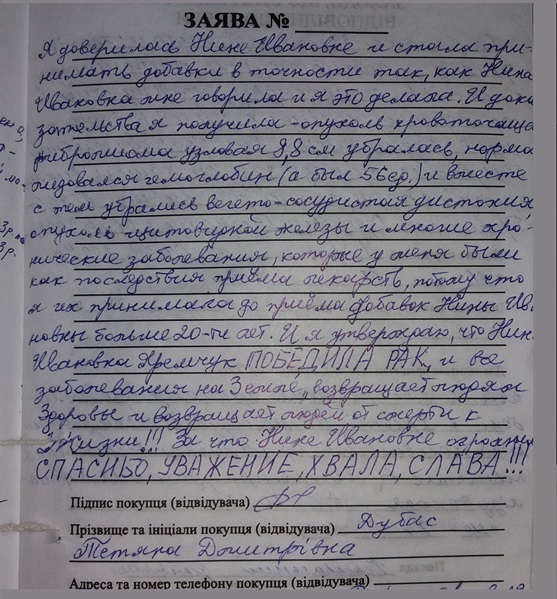 ЗАЯВА №
Я доверилась Нине Ивановне и стала при-
нимать добавки в точности так, как Нина
Ивановна мне говорила и я это делала. И дока
зательства я получила - опухоль кровоточаща
фибромиома узловая 8,8 см убралась, норма
лизовался гемоглобин (а был 56ед.) и вместе
с тем убрались вегето-сосудистая дистония
опухоль щитовидной железы и многие хро-
нические заболевания, которые у меня были
как последствия приёма лекарств, потому что
я их принимала до приёма добавок Нины Ив
новны больше 20-ти лет. И я утверждаю, что Нин
Ивановна Яремчук ПОБЕДИЛА РАК, и все
заболевания на Земле, возвращает людям
Здоровье и возвращает людей от смерти к
Жизни!!! За что Нине Ивановне огромные
СПАСИБО, УВАЖЕНИЕ, ХВАЛА, СЛАВА!!!
Підпис покупця (відвідувача)
Прізвище та ініціали покупця (відвідувача) Дубас
Тетяна Дмитрівна
Адреса та номер телефону покупця (відвідувача)